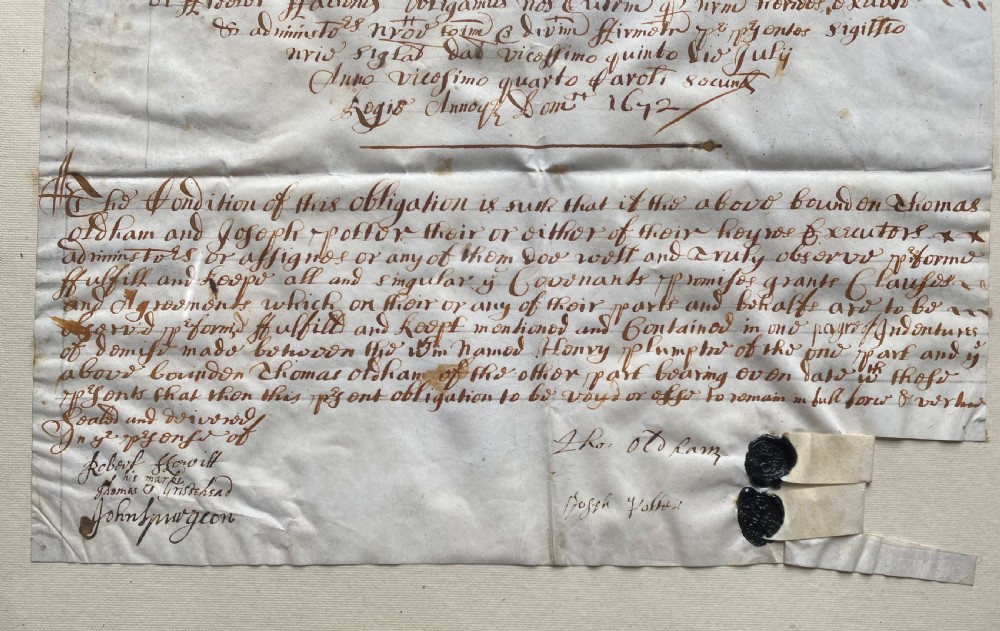 obligamus nos
& administors firmiter p psentes sigillis
nris sigillat dat vicessimo quinto die July
Anno vicesimo quarto Caroli secundi
Regis Annoq Dom 1672
The Condition of this obligation is such that if the above bounden Thomas
Oldham and Joseph Potter their or either of their heyres Executors
administors or assignes or any of them doe well and Truly observe pforme
ffulfill and keepe all and singular ye Covenants Promises grants Clauses
and Agreements which on their or any of their parts and behalfs are to be
observ'd pformd ffulfilld and keept mentioned and Contained in one payre of Indentures
of demise made between the wthin Named Henry Plumptre of the one part and ye
above bounden Thomas Oldham of the other part bearing even date wth these
psents that then this psent obligation to be voyd or else to remain in full force & vertue
Sealed and delivered
In ye psense of
Tho: Oldham
Robert Howitt
his marke
Thomas Gristhead
Joseph Potter
John Spurgeon